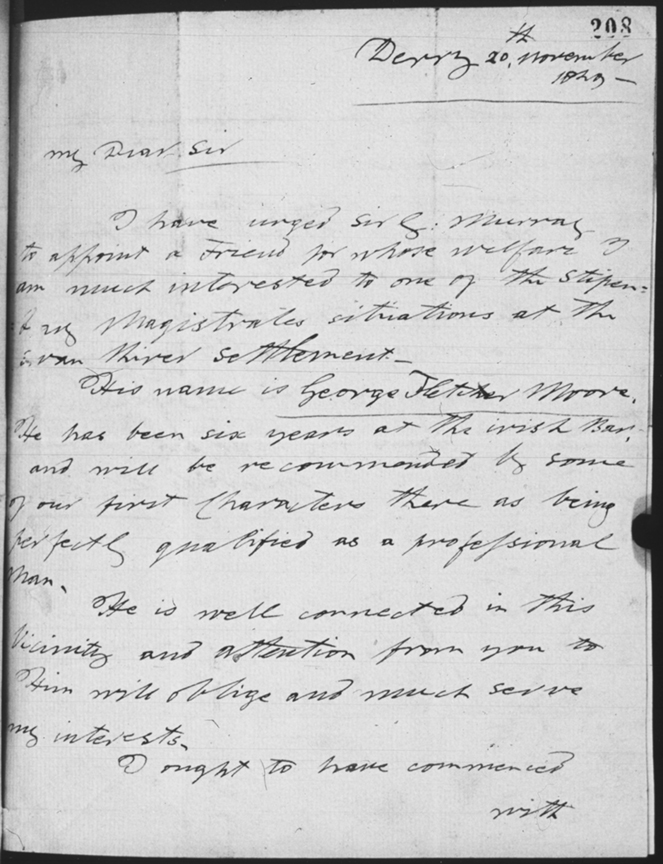 208
Derry 20th November
1829 —
My Dear Sir
I have urged Sir G. Murray
to appoint a Friend for whose welfare I
am much interested to one of the Stipen=
=d ry Magistrates situations at the
Swan River Settlement —
His name is George Fletcher Moore.
He has been six years at the irish Bar.
and will be recommended by some
of our first Characters there as being
perfectly qualified as a professional
Man.
He is well connected in this
Vicinity and attention from you to
Him will oblige and much serve
my interests.
I ought to have commenced
with